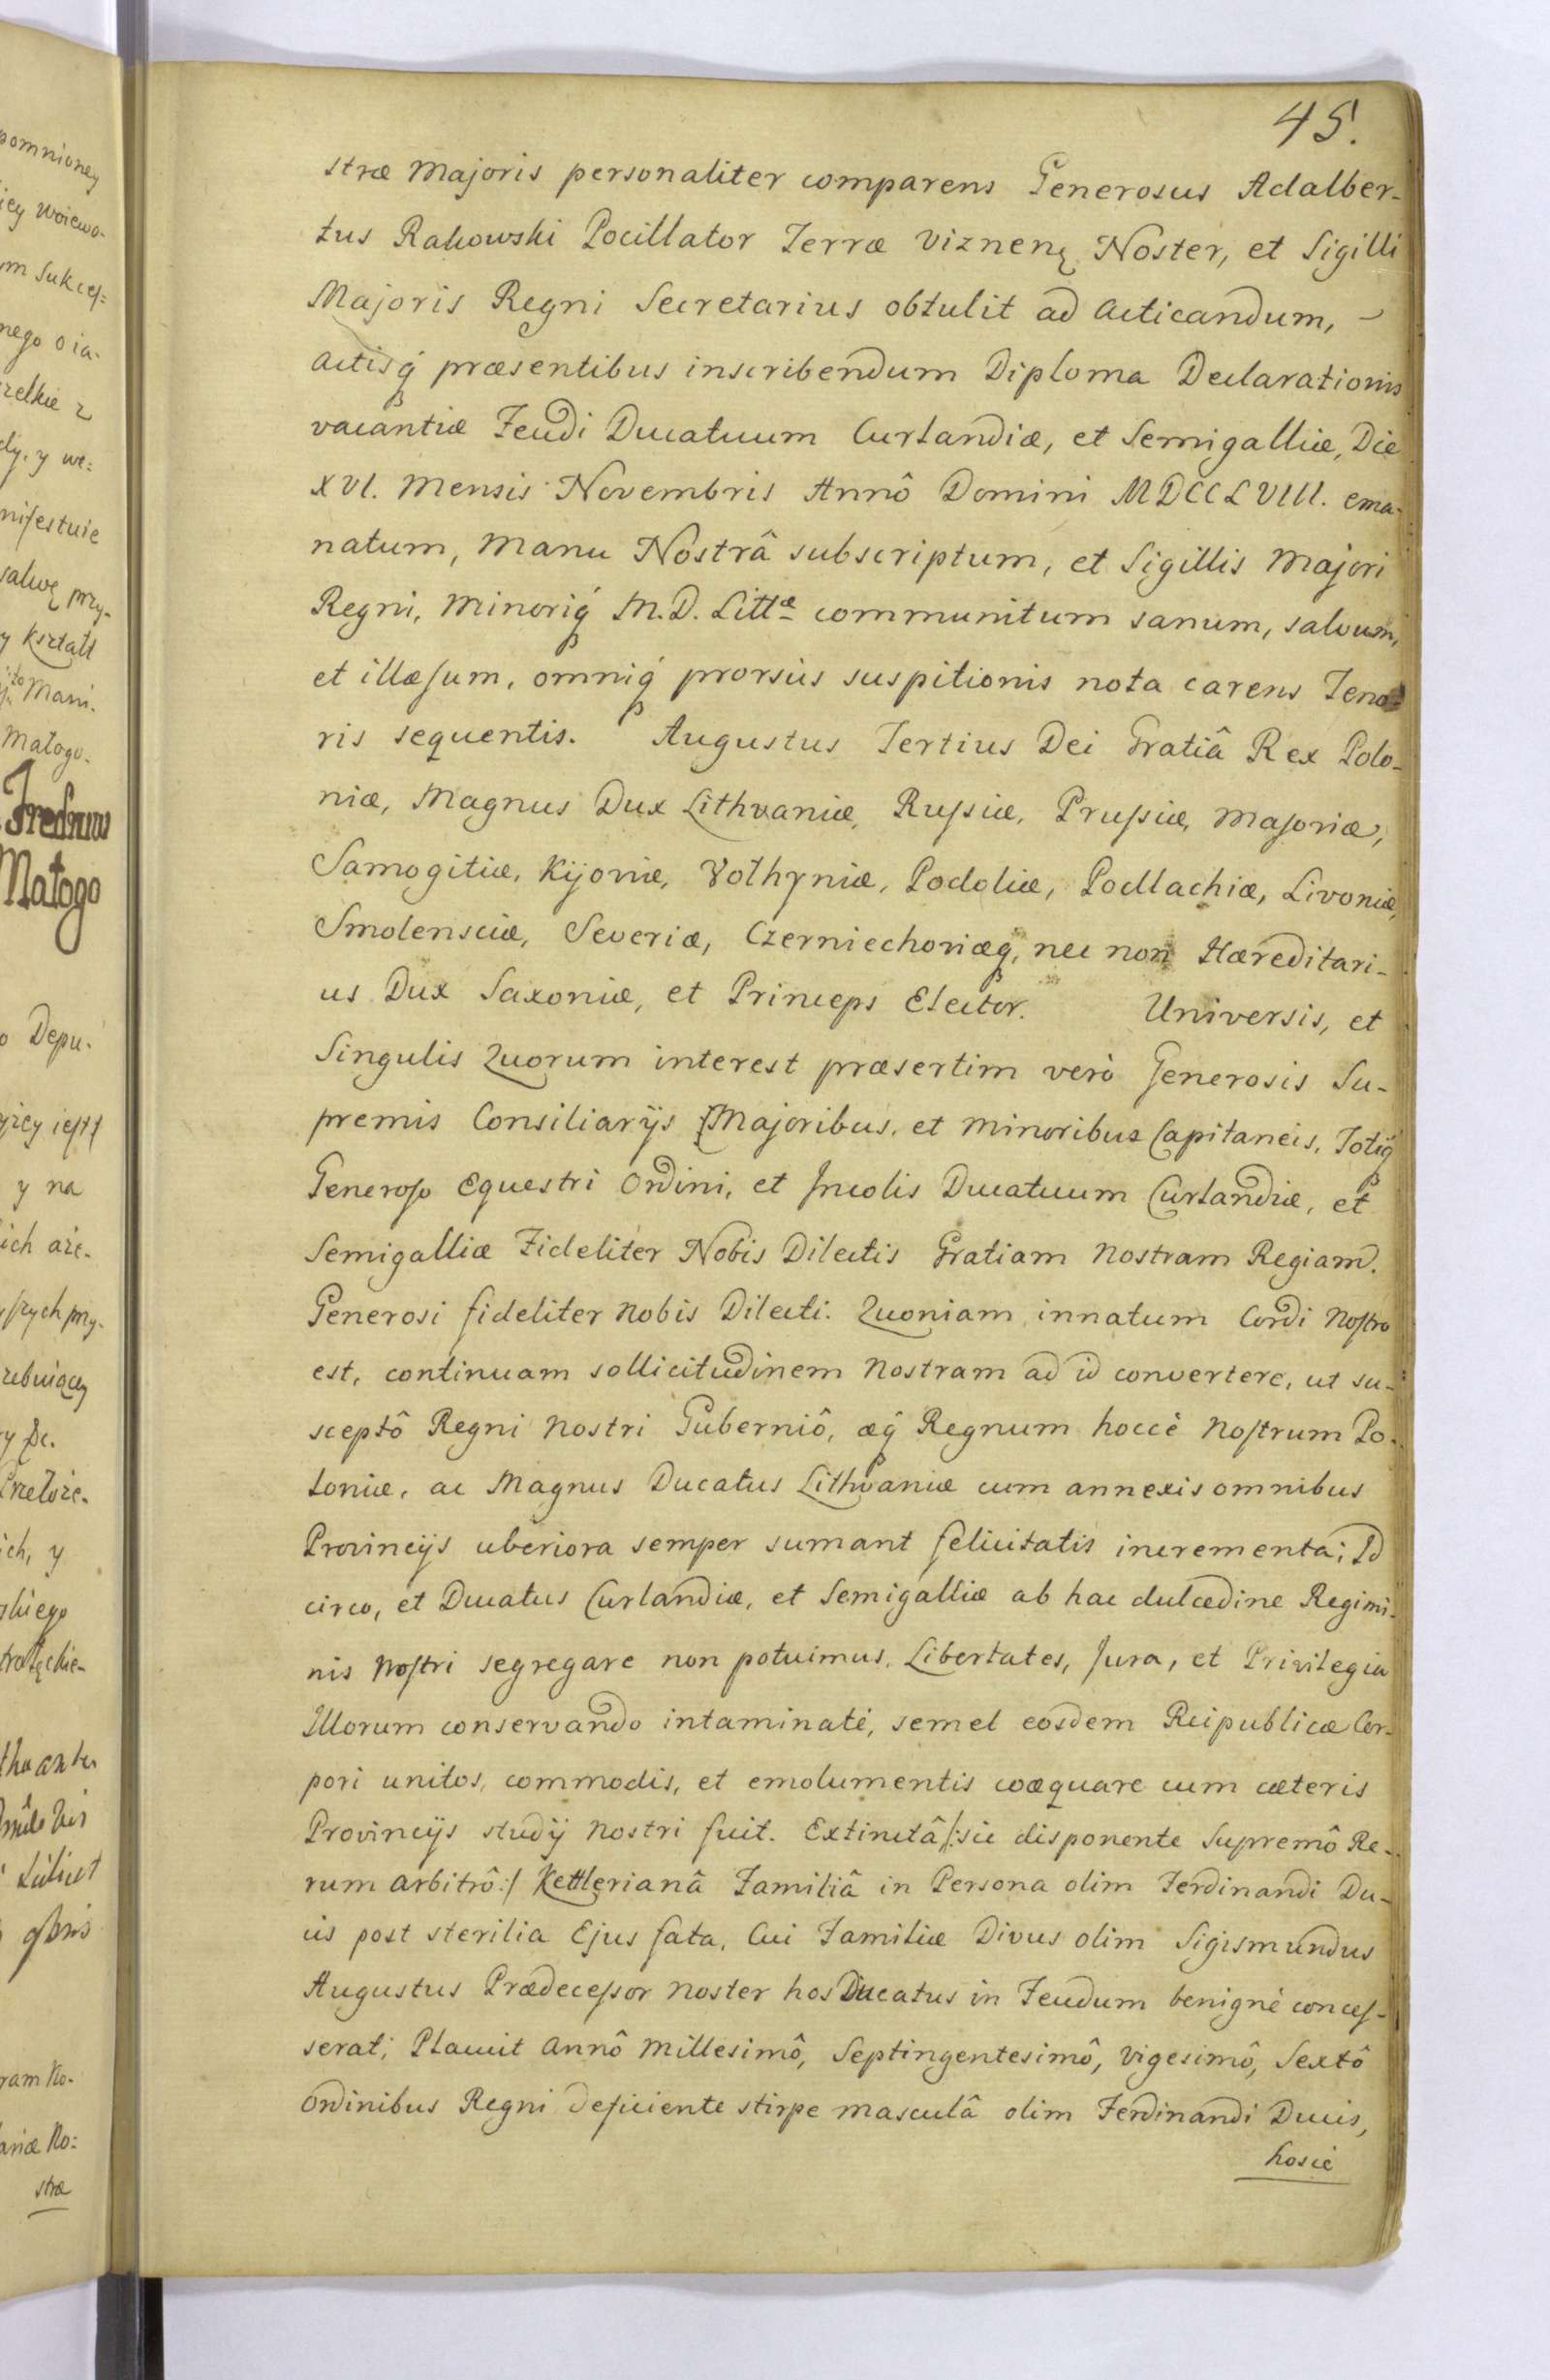 45.
stræ Majoris personaliter comparens Generosus Adalber-
tus Rakowski Pocillator Terræ Viznenę Noster, et Sigilli
Majoris Regni Secretarius obtulit ad acticandum,
actisq́ præsentibus inscribendum Diploma Declarationis
vacantiæ Feudi Ducatuum Curlandiæ, et Semigalliæ, Die
XVI. Mensis Novembris Annô Domini MDCCLVIII. ema-
natum, Manu Nostrâ subscriptum, et Sigillis Majori
Regni, Minoriq́ M.D. Littæ communitum sanum, salvum,
et illæsum, omniq́ prorsùs suspitionis nota carens Teno-
ris sequentis. Augustus Tertius Dei Gratiâ Rex Polo-
niæ, Magnus Dux Lithvaniæ, Russiæ, Prussiæ, Masoviæ,
Samogitiæ, Kijoviæ, Volhyniæ, Podoliæ, Podlachiæ, Livoniæ,
Smolensciæ, Severiæ, Czerniechoviæq́, nec non Hæreditari-
us Dux Saxoniæ, et Princeps Elector. Universis, et
Singulis Quorum interest præsertim verò Generosis Su-
premis Consiliarÿs Majoribus, et Minoribus Capitaneis, Totiq́
Generoso Equestri Ordini, et Incolis Ducatuum Curlandiæ, et
Semigalliæ Fideliter Nobis Dilectis Gratiam Nostram Regiam.
Generosi fideliter Nobis Dilecti. Quoniam innatum Cordi Nostro
est, continuam sollicitudinem Nostram ad id convertere, ut su-
sceptô Regni Nostri Guberniô, æq́ Regnum hoccè Nostrum Po-
loniæ, ac Magnus Ducatus Lithvaniæ cum annexis omnibus
Provincÿs uberiora semper sumant felicitatis incrementa; Id
circo, et Ducatus Curlandiæ, et Semigalliæ ab hac dulcedine Regimi-
nis Nostri segregare non potuimus, Libertates, Jura, et Privilegia
Illorum conservando intaminatè, semel eosdem Reipublicæ Cor-
pori unitos, commodis, et emolumentis coæquare cum cæteris
Provincÿs studÿ Nostri fuit. Extinctâ /:sic disponente Supremô Re-
rum arbitrô:/ Kettlerianâ Familiâ in Persona olim Ferdinandi Du-
cis post sterilia Ejus fata, Cui Familiæ Divus olim Sigismundus
Augustus Prædecessor Noster hos Ducatus in Feudum benignè conces-
serat; Placuit Annô Millesimô, Septingentesimô, Vigesimô, Sextô
Ordinibus Regni deficiente stirpe masculâ olim Ferdinandi Ducis,
hosce